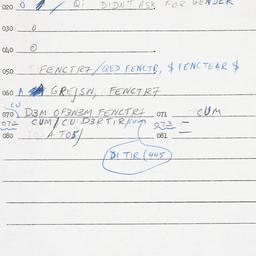 020 0 / Q: DIDNT ASK FOR GENDER
030 0
040 0
050 FENCTR7/QED FENCTR, $ FENCTEAR $
060 A GREJSN, FENCTR7
CU
070 D3M OF3N3M FENCTR7 071 CUM
072 CUM/CU D3RTIR/cum 073 =
080 A TOS/ 081
DITIR (445